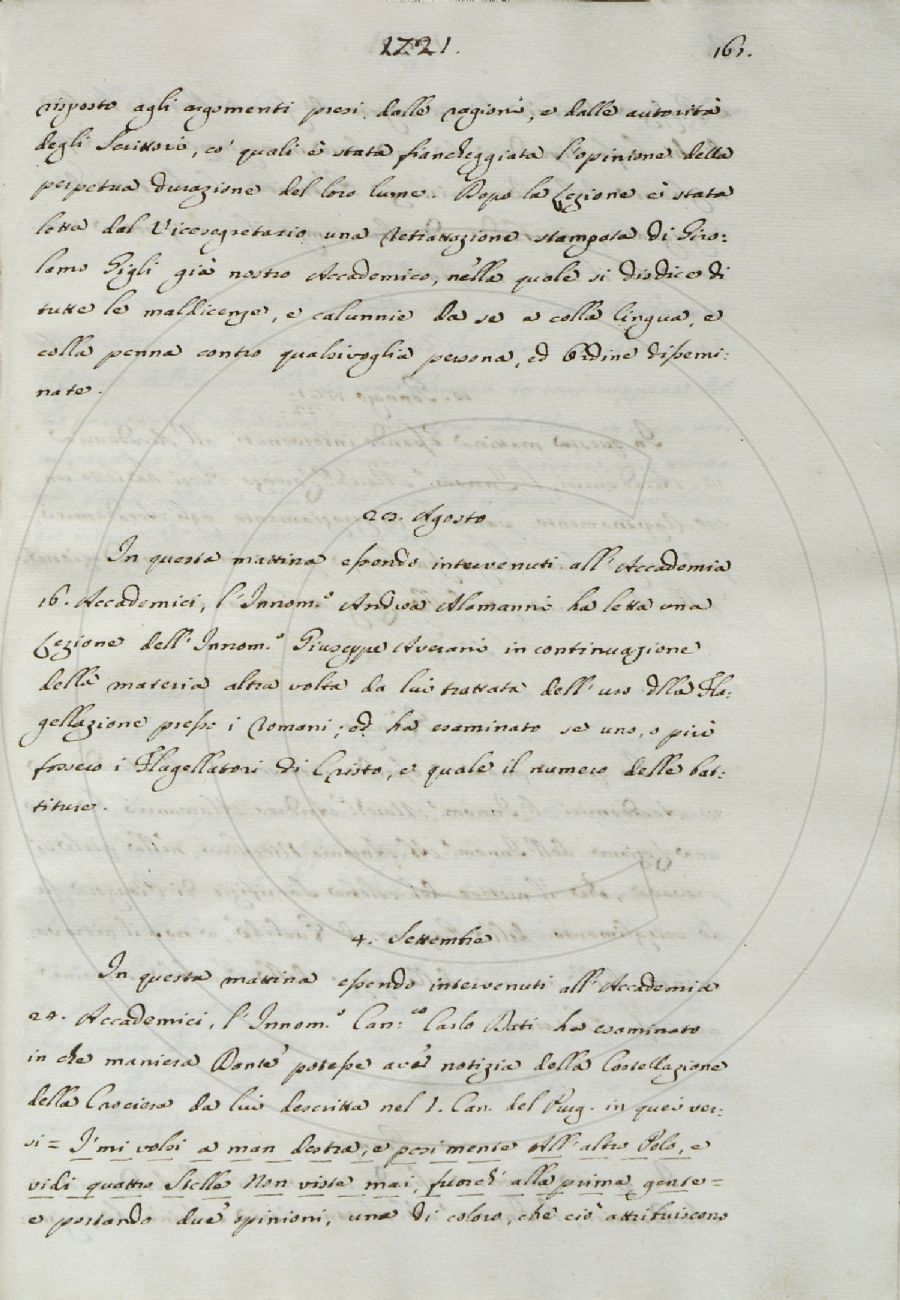 1721.
161.
risposto agli argomenti presi dalle ragioni, e dalle autorità
degli Scrittori, co' quali è stata fiancheggiata l'opinione della
perpetua durazione del loro lume. Dopo la Lezione è stata
letta dal Vicesegretario una retrattazione stampata di Giro:
lamo Gigli già nostro Accademico, nella quale si disdice di
tutte le maldicenze, e calunnie da se e colla lingua, e
colla penna contro qualsivoglia persona, ed Ordine dissemi:
nate.
Agosto
In questa mattina essendo intervenuti all'Accademia
16. Accademici, l'Innom.º Andrea Alamanni ha letta una
Lezione dell'Innom.º Giuseppe Averani in continuazione
della materia altra volta da lui trattata dell'uso dlla Fla:
gellazione presso i Romani; ed ha esaminato se uno, o più
fossero i Flagellatori di Cristo, e quale il numero delle bat:
titure.
4. Settembre
In questa mattina essendo intervenuti all'Accademia
24. Accademici, l'Innom.º Can:co Carlo Dati ha esaminato
in che maniera Dante potesse aver notizia della Costellazione
della Crociera da lui descritta nel I. Can. del Purg. in quei ver:
si = I' mi volsi a man destra, e posi mente All'altro Polo, e
vidi quattro Stelle Non viste mai, fuorchè alla prima gente =
e portando due opinioni, una di coloro, che ciò attribuiscono